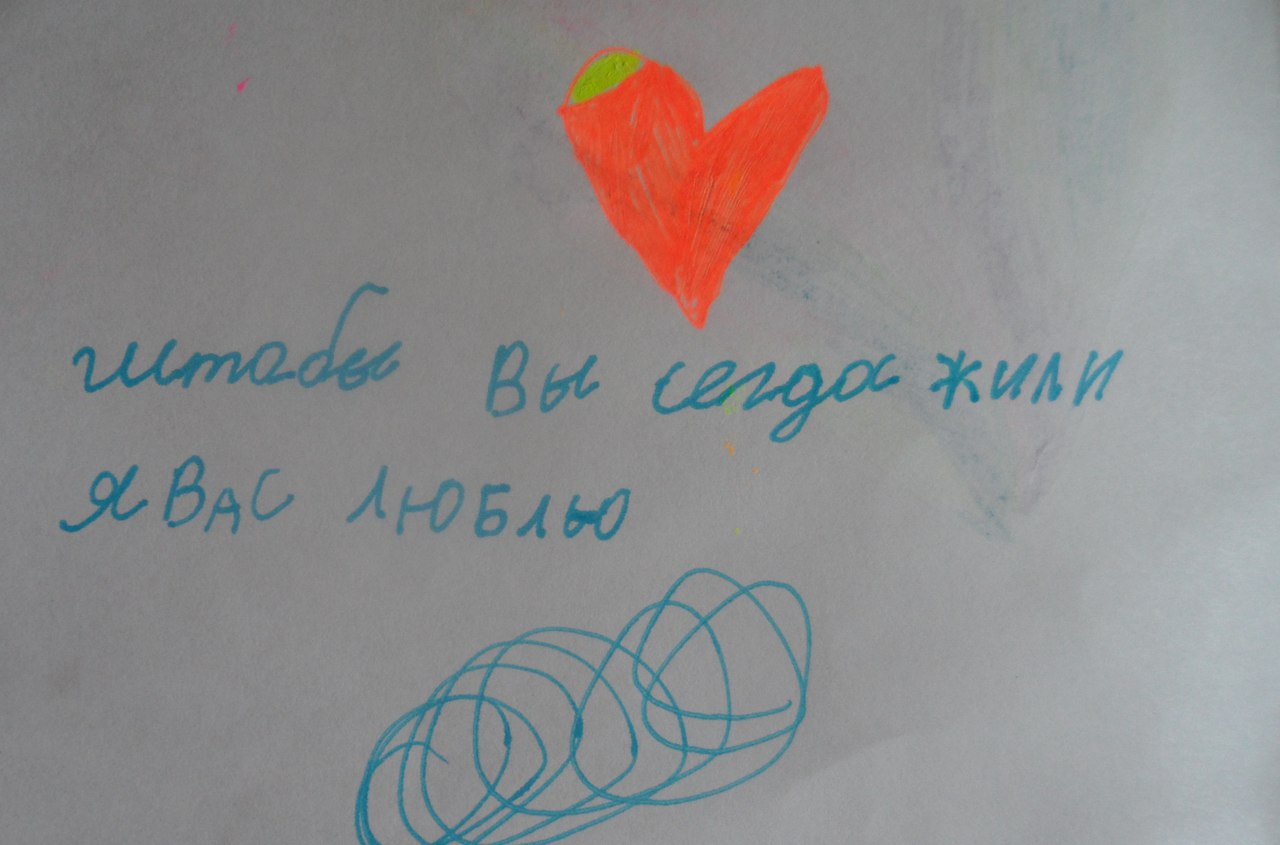 штабы Вы сегда жили
я ВАС люблю